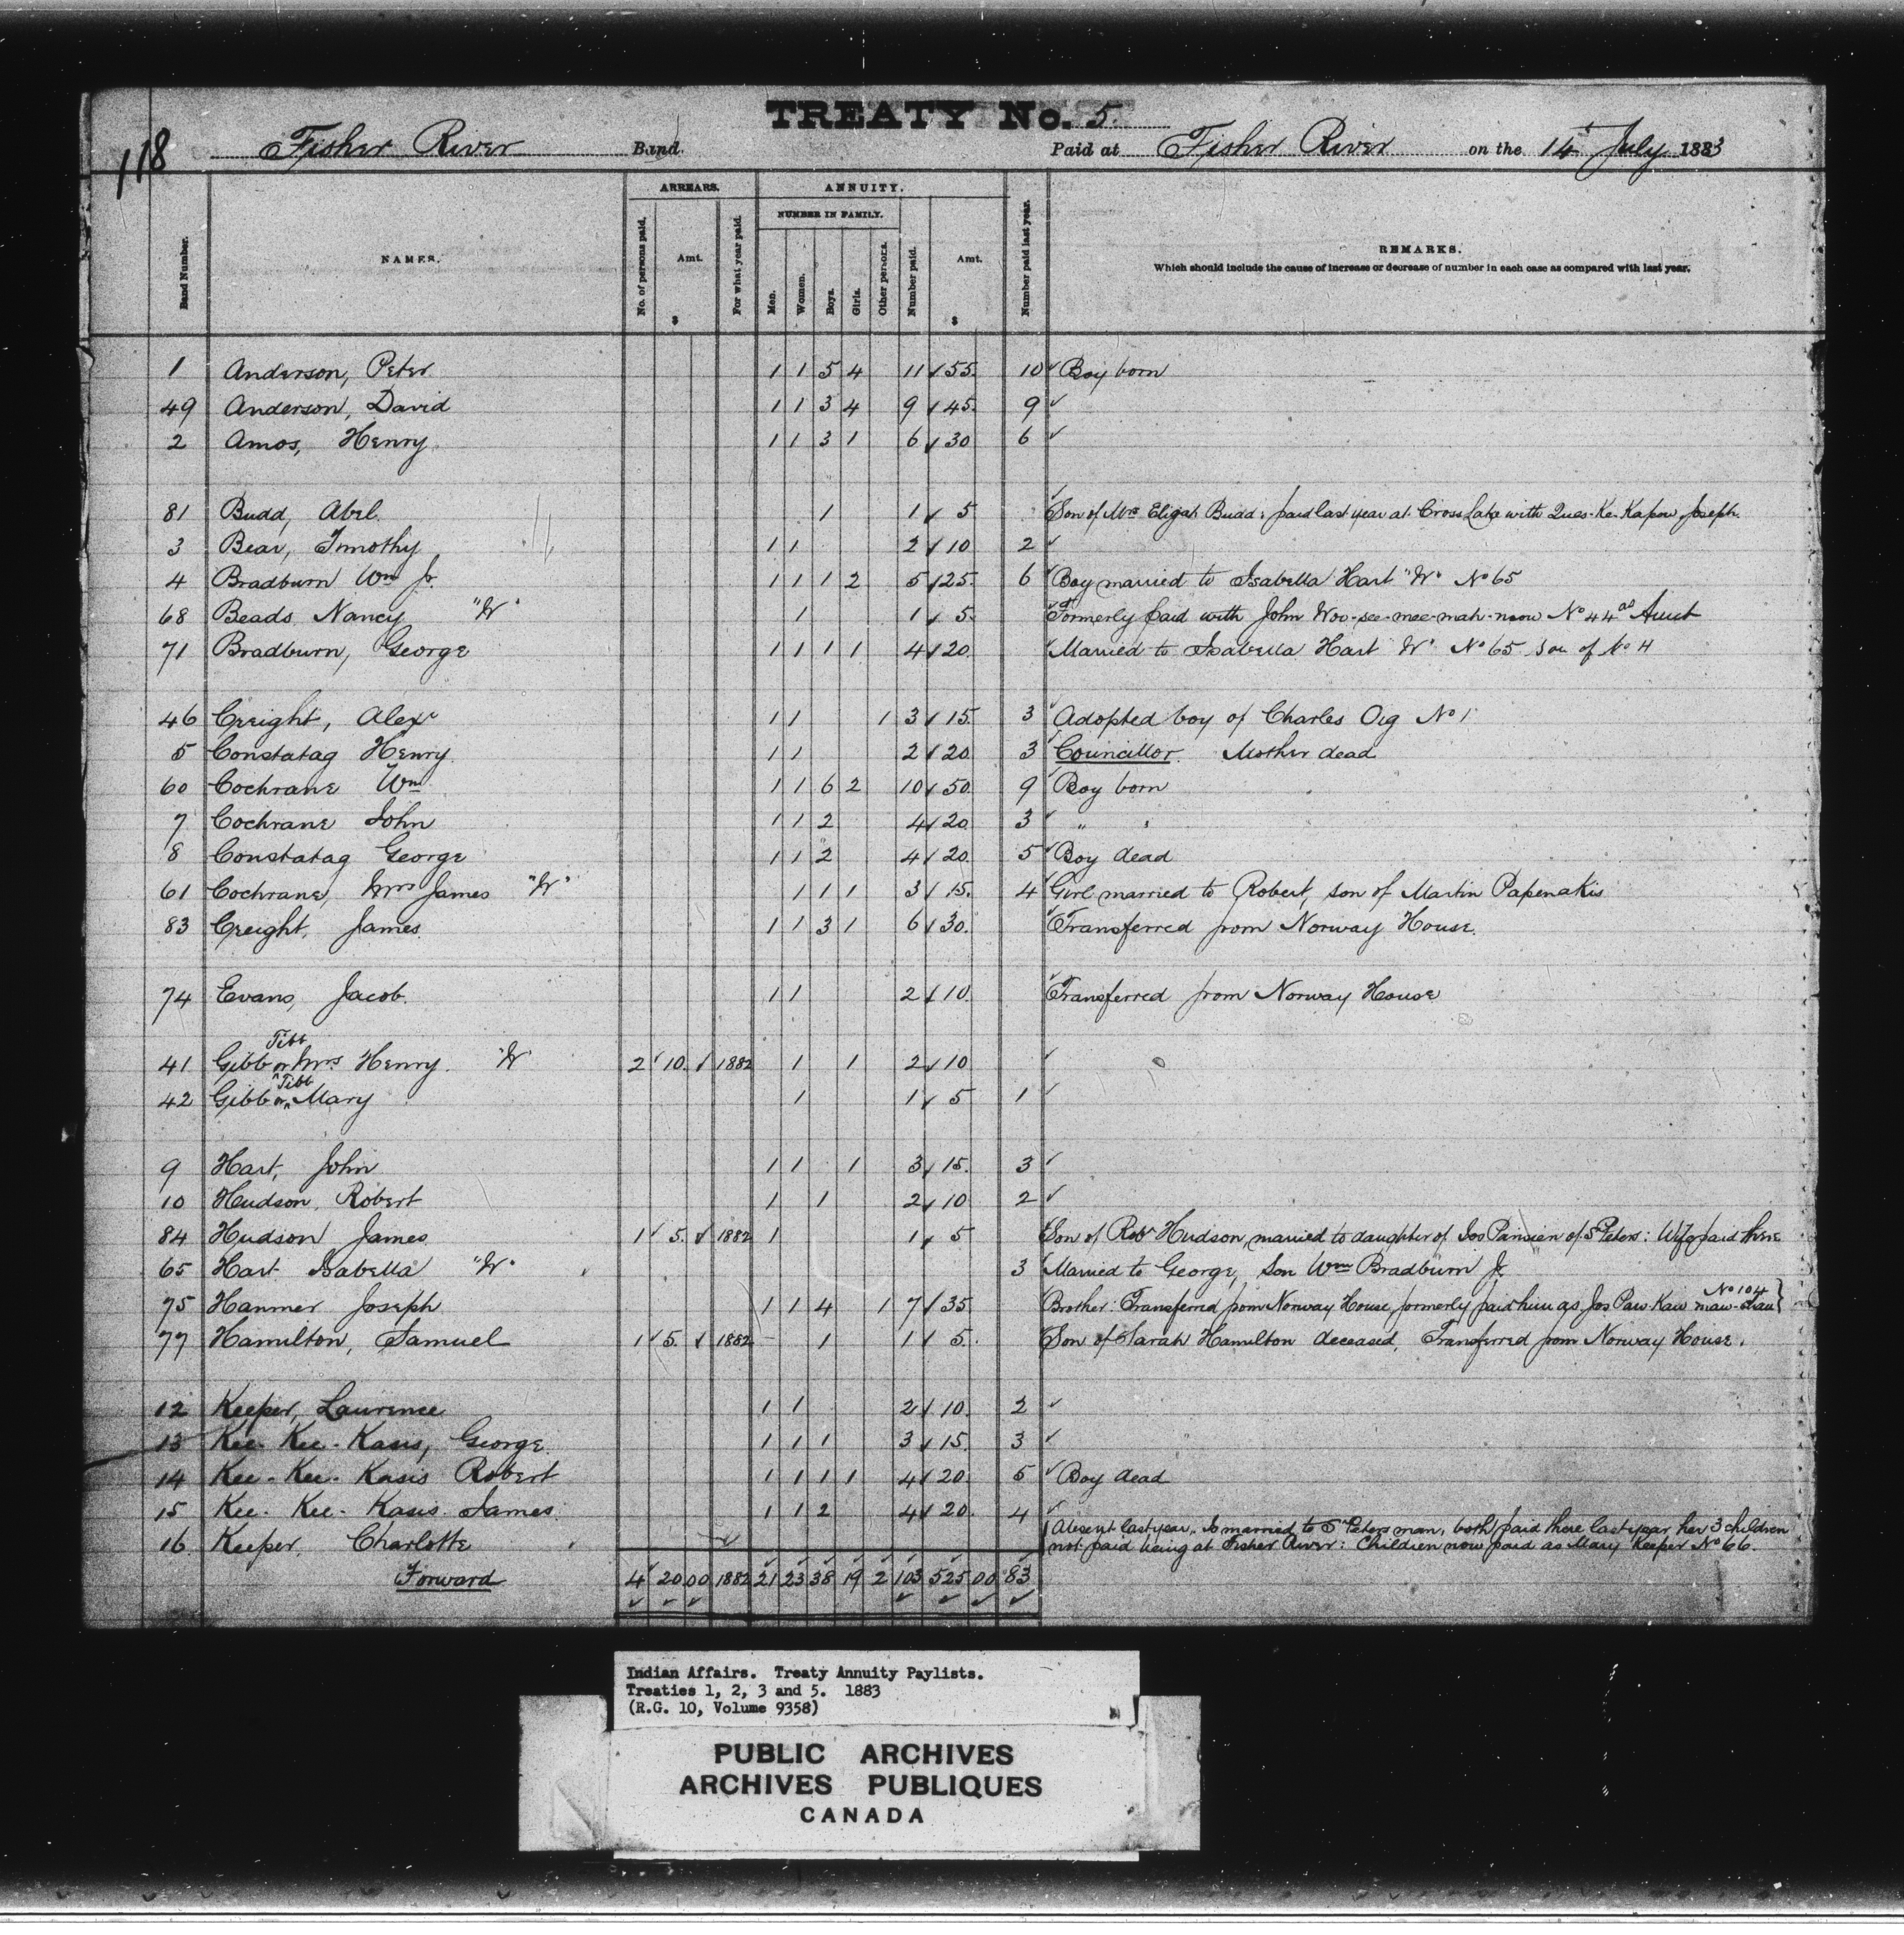 TREATY No. 5.
118 Fisher River Band. Paid at Fisher River on the 14th July 1883
ARREARS. ANNUITY.
NUMBER IN FAMILY.
Band Number. NAMES. No. of persons paid. Amt. $ For what year paid. Men. Women. Boys. Girls. Other persons. Number paid. Amt. $ Number paid last year. REMARKS.
Which should include the cause of increase or decrease of number in each case as compared with last year.
1 Anderson, Peter 1 1 5 4 11 55. 10 Boy born
49 Anderson, David 1 1 3 4 9 45. 9
2 Amos, Henry 1 1 3 1 6 30 6
81 Budd, Abel. 1 1 5 Son of Mrs Elijah Budd: paid last year at Cross Lake with Ques-Ke-Kapow, Joseph.
3 Bear, Timothy 1 1 2 10 2
4 Bradburn Wm Jr. 1 1 1 2 5 25. 6 Boy married to Isabella Hart "W" No 65
68 Beads Nancy "W" 1 1 5. Formerly paid with John Woo-see-mee-mah-noow No 44 as Aunt
71 Bradburn, George 1 1 1 1 4 20. Married to Isabella Hart "W" No 65 son of No 4
46 Creight, Alexr 1 1 1 3 15. 3 Adopted boy of Charles Oig No 1
5 Constatag Henry 1 1 2 20. 3 Councillor. Mother dead
60 Cochrane Wm 1 1 6 2 10 50. 9 Boy born
7 Cochrane John 1 1 2 4 20. 3 " "
8 Constatag George 1 1 2 4 20. 5 Boy dead
61 Cochrane, Mrs James "W" 1 1 1 3 15. 4 Girl married to Robert, son of Martin Papenakis
83 Creight, James 1 1 3 1 6 30. Transferred from Norway House.
74 Evans, Jacob. 1 1 2 10. Transferred from Norway House
Tibb
41 Gibb or Mrs Henry. "W" 2 10. 1882 1 1 2 10
Tibb
42 Gibb or Mary 1 1 5 1
9 Hart, John 1 1 1 3 15. 3
10 Hudson, Robert 1 1 2 10 2
84 Hudson James 1 5. 1882 1 1 5 Son of Robt Hudson, married to daughter of Jos Parisien of St Peters: Wife paid there
65 Hart Isabella "W" 3 Married to George, Son Wm Bradburn Jr.
No 104
75 Hanmer Joseph 1 1 4 1 7 35 Brother: Transferred from Norway House, formerly paid him as Jos Paw-Kaw-maw-
77 Hamilton, Samuel 1 5. 1882 1 1 5. Son of Sarah Hamilton deceased, Transferred from Norway House.
12 Keeper, Laurence 1 1 2 10. 2
13 Kee-Kee-Kasis, George. 1 1 1 3 15. 3
14 Kee-Kee-Kasis Robert 1 1 1 1 4 20 5 Boy dead
15 Kee-Kee-Kasis James. 1 1 2 4 20. 4
16 Keeper, Charlotte Absent last year, Is married to St Peters man, both paid there last year, her 3 children
not paid being at Fisher River: Children now paid as Mary Keeper No 66.
Forward 4 20 00 1882 21 23 38 19 2 103 525 00 83
Indian Affairs. Treaty Annuity Paylists.
Treaties 1, 2, 3 and 5. 1883
(R.G. 10, Volume 9358)
PUBLIC ARCHIVES
ARCHIVES PUBLIQUES
CANADA